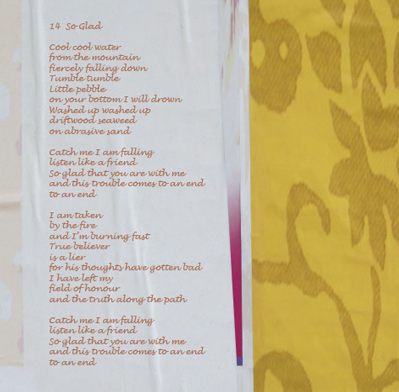 14 So Glad
Cool cool water
from the mountain
fiercely falling down
Tumble tumble
Little pebble
on your bottom I will drown
Washed up washed up
driftwood seaweed
on abrasive sand
Catch me I am falling
listen like a friend
So glad that you are with me
and this trouble comes to an end
to an end
I am taken
by the fire
and I'm burning fast
True believer
is a lier
for his thoughts have gotten bad
I have left my
field of honour
and the truth along the path
Catch me I am falling
listen like a friend
So glad that you are with me
and this trouble comes to an end
to an end